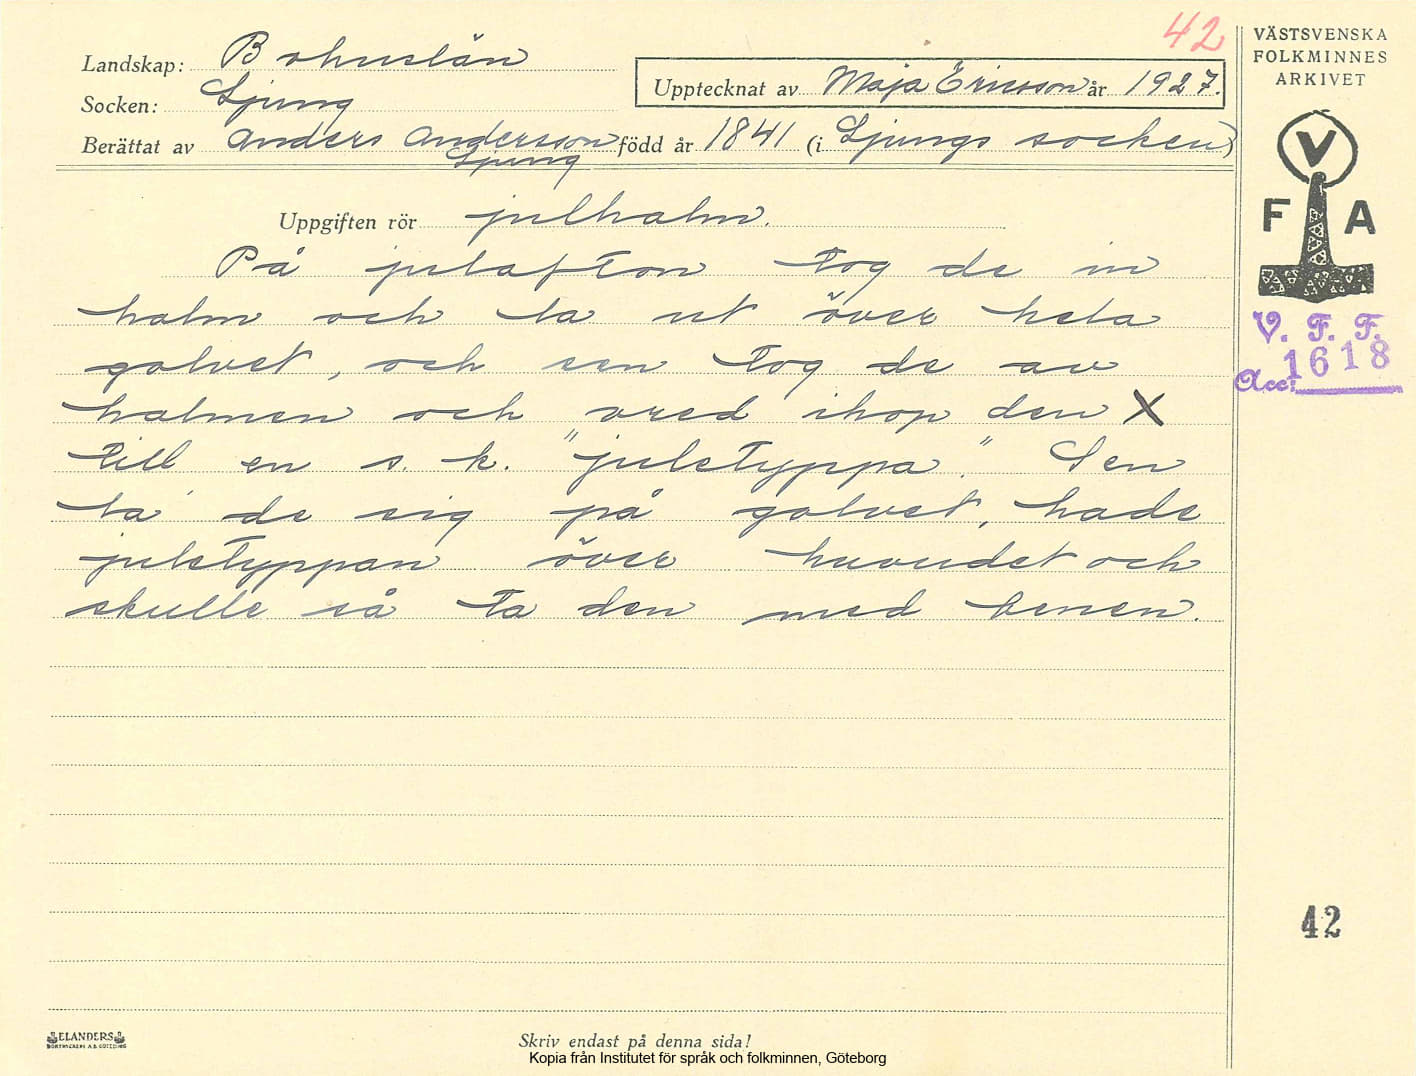 42
Landskap: Bohuslän
Socken: Ljung
Upptecknat av Maja Ericsson år 1927.
Berättat av Anders Andersson född år 1841 (i Ljungs socken)
Ljung
Uppgiften rör julhalm.
På julafton tog de in
halm och la ut över hela
golvet, och sen tog de av
halmen och vred ihop den X
till en s. k. "julstyppa". Sen
la de sig på golvet, hade
julstyppan över huvudet och
skulle så ta den med benen.
VÄSTSVENSKA
FOLKMINNES
ARKIVET
V
F A
V. F. F.
Acc: 1618
42
ELANDERS
BOKTRYCKERI A.B. GÖTEBORG
Skriv endast på denna sida!
Kopia från Institutet för språk och folkminnen, Göteborg